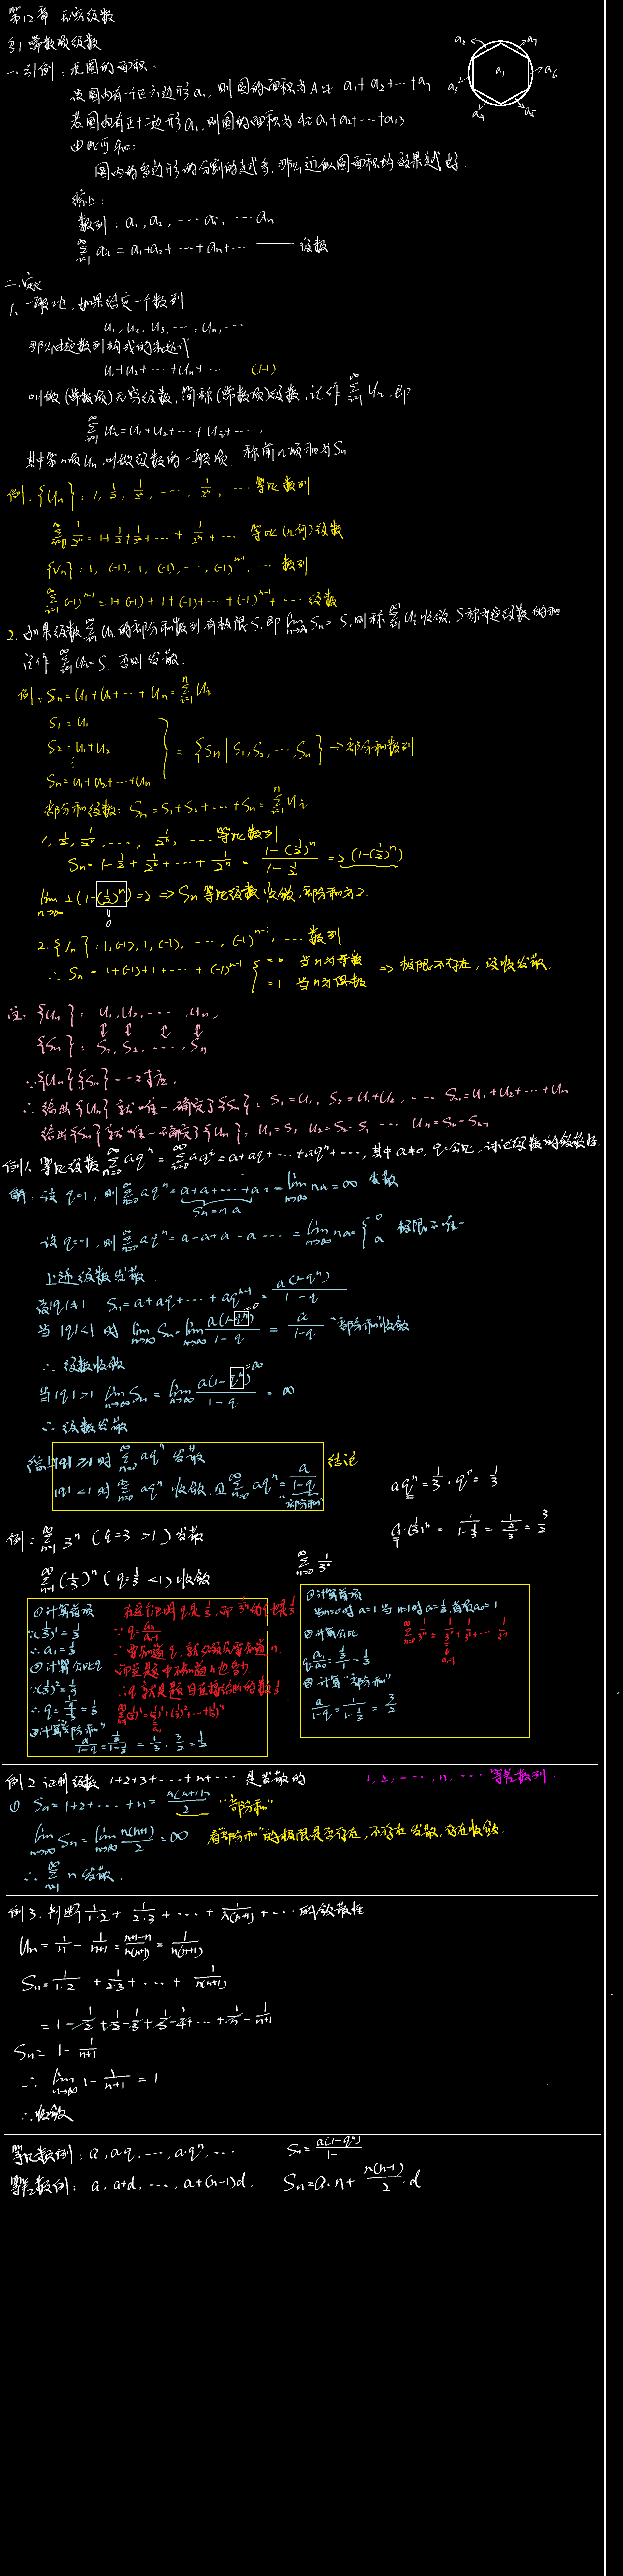 第12章 无穷级数
§1 常数项级数
一.引例：求圆的面积.
设圆内有一个正六边形a₁, 则圆的面积为A≈ a₁+a₂+…+a₇
若圆内有正十二边形a₁,则圆的面积为A≈a₁+a₂+…+a₁₃
由此可知:
圆内的多边形的分割的越多,那么近似圆面积的效果越好.
a₂
a₇
a₃
a₁
a₆
a₄
a₅
综上:
数列：a₁, a₂, … aᵢ, … aₙ
∑_{i=1}^{∞} aᵢ = a₁+a₂+ … +aₙ+ … —— 级数
二.定义
1. 一般地, 如果给定一个数列
u₁, u₂, u₃, …, uₙ, …
那么由这数列构成的表达式
u₁+u₂+…+uₙ+… (1-1)
叫做(常数项)无穷级数,简称(常数项)级数,记作 ∑_{i=1}^{∞} uᵢ, 即
∑_{i=1}^{∞} uᵢ = u₁+u₂+…+uᵢ+…,
其中第n项uₙ,叫做级数的一般项. 称前n项和为Sₙ
例: {uₙ}: 1, 1/2, 1/2², …, 1/2ⁿ, … 等比数列
∑_{i=0}^{∞} 1/2ⁿ = 1+1/2+1/2²+ … + 1/2ⁿ + … 等比(几何)级数
{vₙ}: 1, (-1), 1, (-1), …, (-1)ⁿ⁻¹, … 数列
∑_{i=1}^{∞} (-1)ⁿ⁻¹ = 1+(-1)+1+(-1)+…+(-1)ⁿ⁻¹+ … 级数
2. 如果级数∑_{i=1}^{∞} uᵢ的部分和数列有极限S,即 lim_{n→∞} Sₙ = S,则称∑_{i=1}^{∞} uᵢ收敛. S称为这级数的和
记作 ∑_{i=1}^{∞} uᵢ=S. 否则发散.
例: Sₙ = u₁+u₂+…+uₙ = ∑_{i=1}^{n} uᵢ
S₁ = u₁
S₂ = u₁+u₂
⋮
Sₙ = u₁+u₂+…+uₙ
} = {Sₙ | S₁,S₂, …,Sₙ} → 部分和数列
部分和级数: Sₙ = S₁+S₂+…+Sₙ = ∑_{i=1}^{n} uᵢ
1, 1/2, 1/2², …, 1/2ⁿ, … 等比数列
Sₙ = 1+1/2+1/2²+…+1/2ⁿ = (1-(1/2)ⁿ)/(1-1/2) = 2(1-(1/2)ⁿ)
lim_{n→∞} 2(1-(1/2)ⁿ) = 2 ⇒ Sₙ等比级数收敛,部分和为2.
=0
2. {vₙ}: 1, (-1), 1, (-1), …, (-1)ⁿ⁻¹, … 数列
∴ Sₙ = 1+(-1)+1+…+(-1)ⁿ⁻¹ { =0 当n为奇数 =1 当n为偶数 ⇒ 极限不存在, 级数发散.
注: {uₙ}: u₁, u₂, …, uₙ,
{Sₙ}: S₁, S₂, …, Sₙ
∵ {uₙ}{Sₙ}一一对应,
∴ 给出{uₙ}就唯一确定了{Sₙ}: S₁=u₁, S₂=u₁+u₂, … Sₙ=u₁+u₂+…+uₙ
给出{Sₙ}就唯一确定了{uₙ}: u₁=S₁ u₂=S₂-S₁ … uₙ=Sₙ-Sₙ₋₁
例1. 等比级数∑_{n=0}^{∞} aqⁿ = ∑_{i=0}^{∞} aqⁱ = a+aq+…+aqⁿ+…,其中a≠0, q:公比,试讨论级数的敛散性.
解: 设q=1, 则∑_{n=0}^{∞} aqⁿ = a+a+…+a+ = lim_{n→∞} na = ∞ 发散
Sₙ = na
设q=-1, 则∑_{n=0}^{∞} aqⁿ = a-a+a-a… = lim_{n→∞} na = { 0 a 极限不唯一
上述级数发散.
设|q|≠1 Sₙ = a+aq+…+aqⁿ⁻¹ = a(1-qⁿ)/(1-q)
当|q|<1时 lim_{n→∞} Sₙ = lim_{n→∞} a(1-qⁿ)/(1-q) = a/(1-q) "部分和"收敛
∴ 级数收敛
当|q|>1 lim_{n→∞} Sₙ = lim_{n→∞} a(1-qⁿ)/(1-q) = ∞
∴ 级数发散
综上|q|≥1时∑_{n=0}^{∞} aqⁿ 发散 结论
|q|<1时∑_{n=0}^{∞} aqⁿ 收敛, 且∑_{n=0}^{∞} aqⁿ = a/(1-q) "部分和"
aqⁿ = 1/3·q⁰ = 1/3
a·(1/3)ⁿ = 1/(1-1/3) = 1/(2/3) = 3/2
例: ∑_{n=1}^{∞} 3ⁿ (q=3>1) 发散
∑_{n=1}^{∞} (1/3)ⁿ (q=1/3<1) 收敛
∑_{n=0}^{∞} 1/3ⁿ
①计算首项
∵(1/3)¹=1/3
∴a₁=1/3
②计算公比q
∵(1/3)²=1/9
∴q=(1/9)/(1/3)=1/3
③计算"部分和"
a/(1-q) = (1/3)/(1-1/3) = 1/3·3/2 = 1/2
∴要知道q, 就必须要知道n.
而在题中不知道n也行.
∴q就是题目直接给出的数1/3.
①计算首项
当n=0时a=1 当n=1时a=1/3,首项a₀=1
②计算公比
q=a₁/a₀=(1/3)/1=1/3
③计算"部分和"
a/(1-q)=1/(1-1/3)=3/2
例2.证明级数 1+2+3+…+n+… 是发散的 1, 2, …, n, … 等差数列.
① Sₙ = 1+2+…+n = n(n+1)/2 "部分和"
lim_{n→∞} Sₙ = lim_{n→∞} n(n+1)/2 = ∞ 看"部分和"的极限是否存在,不存在发散,存在收敛.
∴ ∑_{n=1}^{∞} n 发散.
例3. 判断 1/(1·2) + 1/(2·3) + … + 1/(n(n+1)) + … 的敛散性
uₙ = 1/n - 1/(n+1) = (n+1-n)/(n(n+1)) = 1/(n(n+1))
Sₙ = 1/(1·2) + 1/(2·3) + … + 1/(n(n+1))
= 1-1/2+1/2-1/3+1/3-1/4+…+1/n-1/(n+1)
Sₙ = 1-1/(n+1)
∴ lim_{n→∞} 1-1/(n+1) = 1
∴收敛
等比数列: a, aq, …, a·qⁿ, … Sₙ = a(1-qⁿ)/1-
等差数列: a, a+d, …, a+(n-1)d, Sₙ = a·n + n(n-1)/2·d